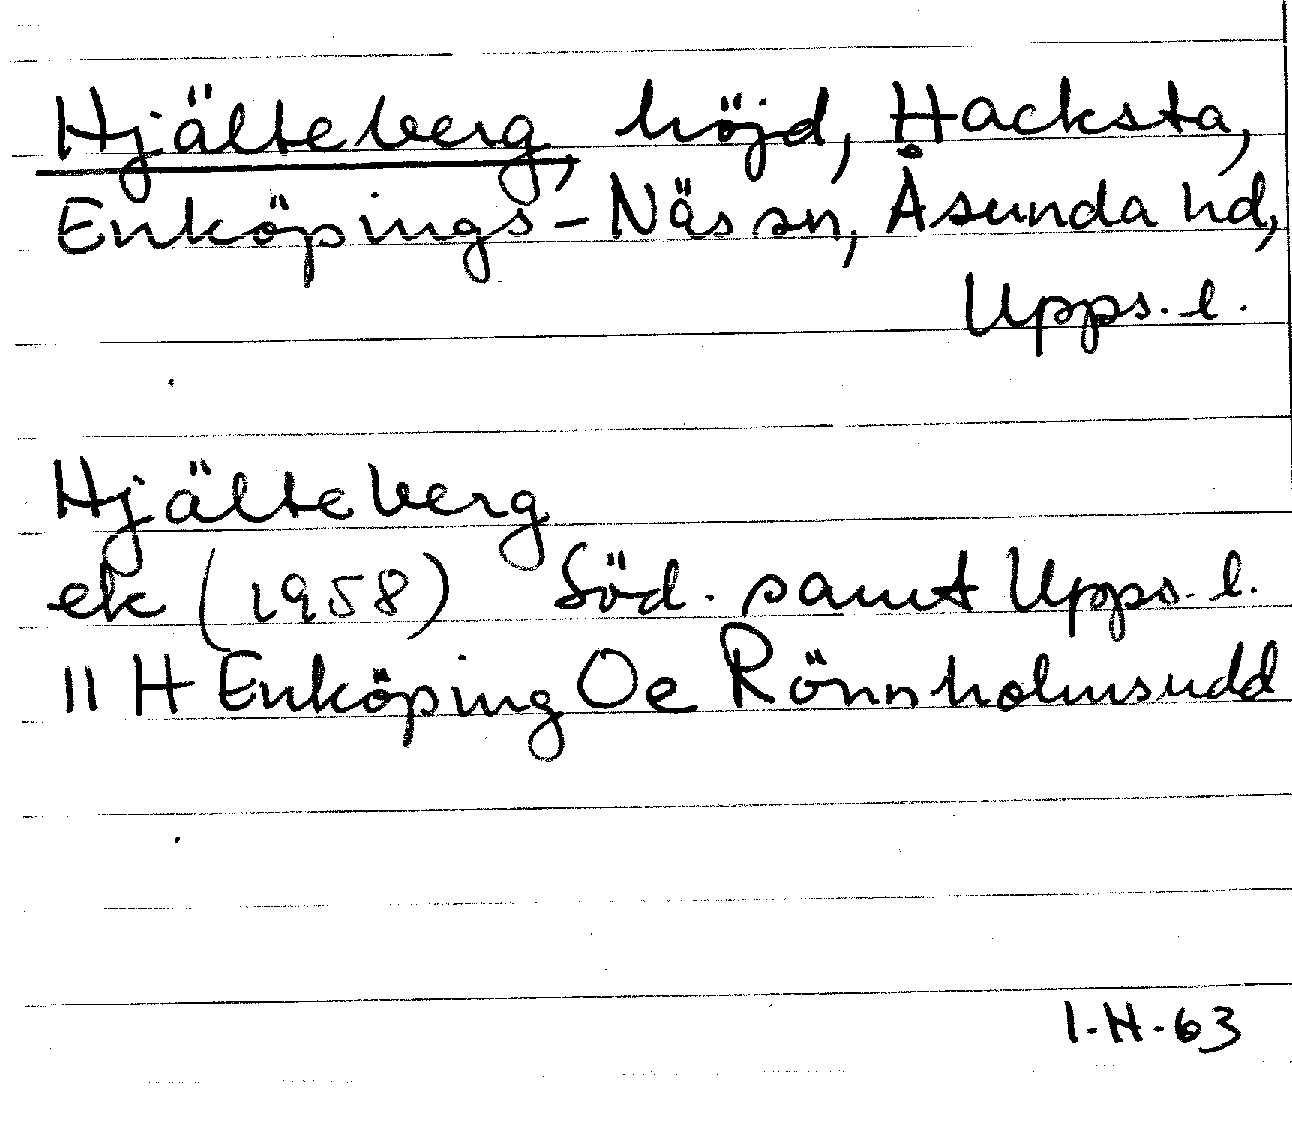 Hjälteberg, höjd, Hacksta,
Enköpings-Näs sn, Åsunda hd,
Upps. l.
Hjälteberg
ek (1958) Söd. samt Upps. l.
11 H Enköping Oe Rönnholmsudd
I.H.63